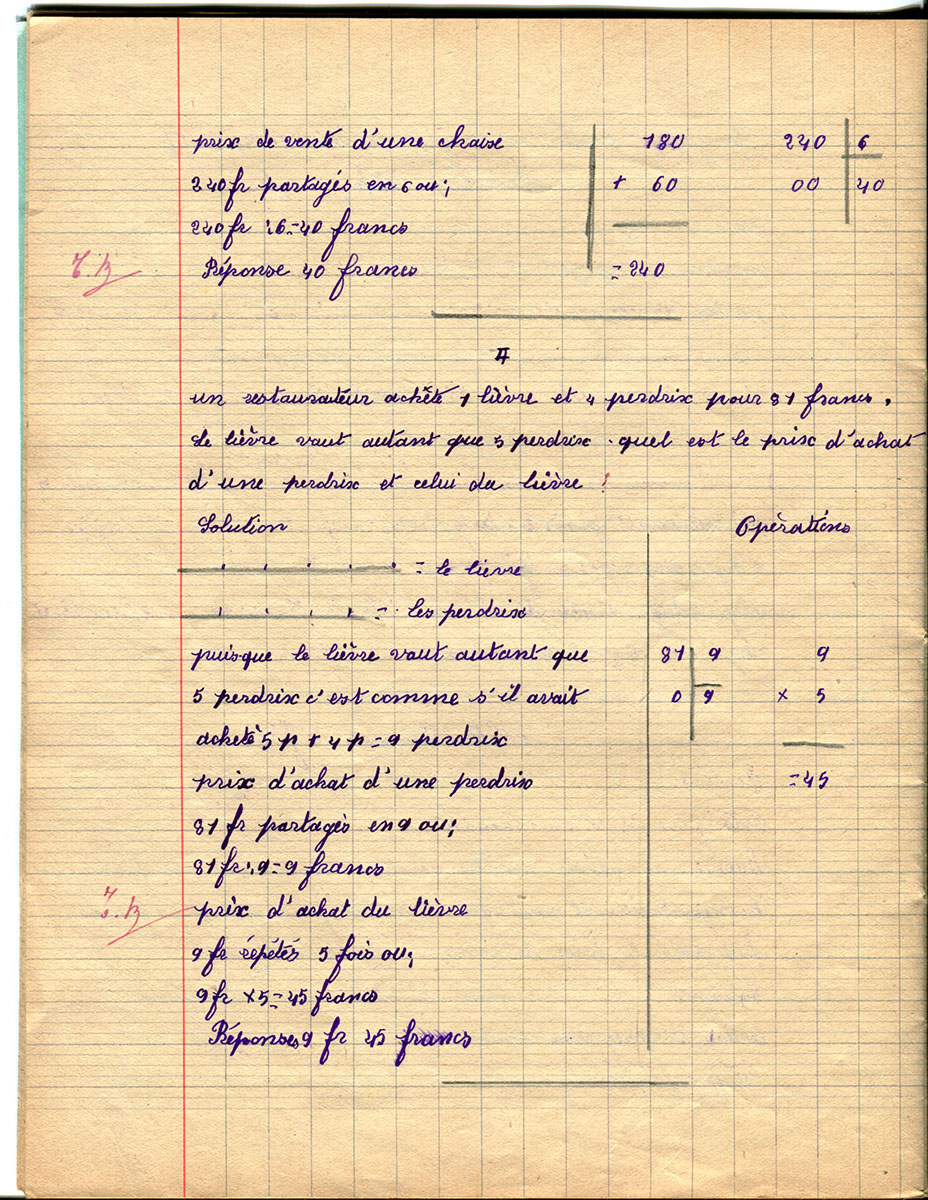 prix de vente d'une chaise 180 240 6
240 fr partagés en 6 ou; + 60 00 40
240 fr : 6 = 40 francs
T.B Réponse 40 francs = 240
II
un restaurateur achète 1 lièvre et 4 perdrix pour 81 francs.
Le lièvre vaut autant que 5 perdrix. quel est le prix d'achat
d'une perdrix et celui du lièvre !
Solution Opérations
= le lièvre
= les perdrix
puisque le lièvre vaut autant que 81 9 9
5 perdrix c'est comme s'il avait 0 9 × 5
acheté 5 p + 4 p = 9 perdrix
prix d'achat d'une perdrix = 45
81 fr partagés en 9 ou;
81 fr : 9 = 9 francs
T.B prix d'achat du lièvre
9 fr répétés 5 fois ou;
9 fr × 5 = 45 francs
Réponses 9 fr 45 francs